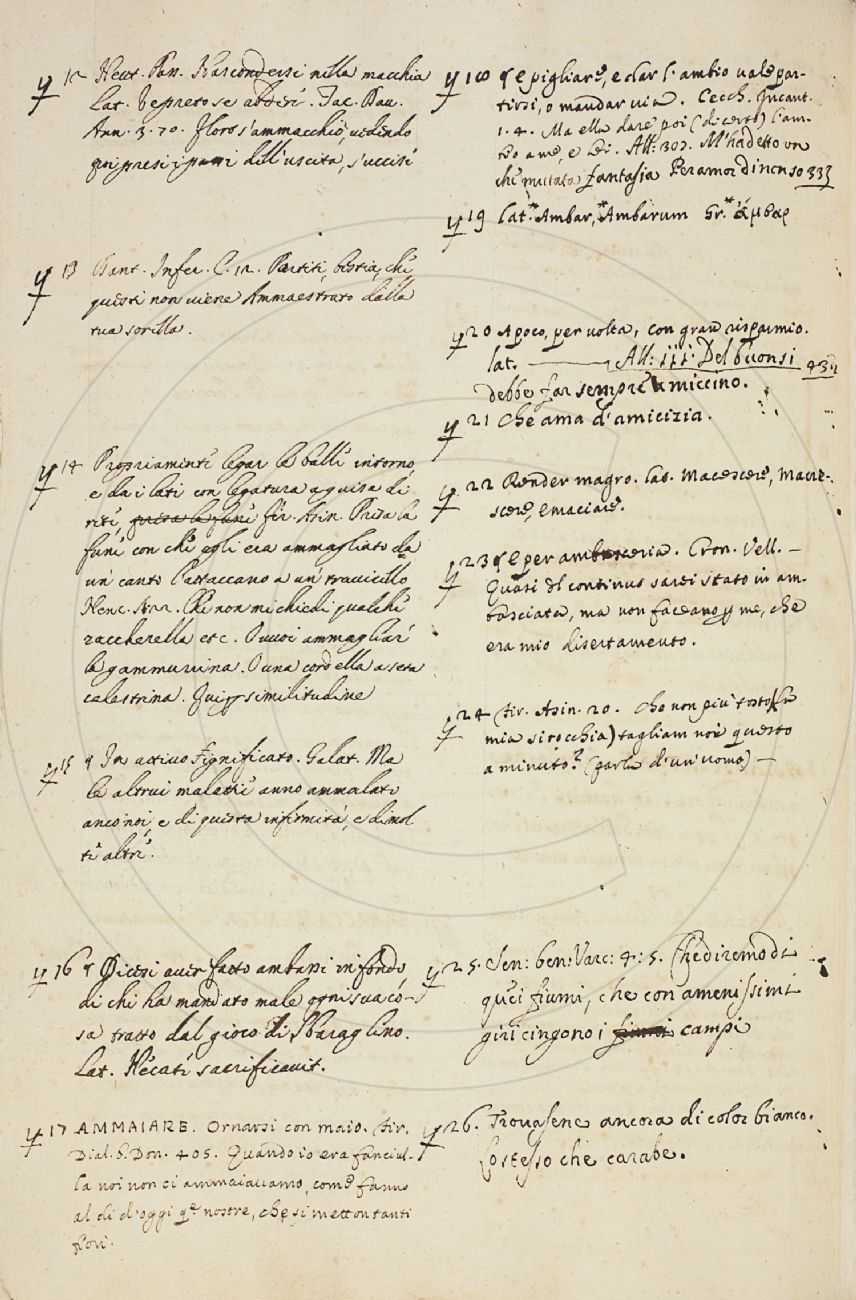 12 Neut. Pass. Nascondersi nella macchia
Lat. Vepreto se abdere. Tac. Dav.
Ann. 3. 70. Floro s'ammacchiò, vedendo
poi presi i passi dell'uscita, s'uccise
13 Dant. Infer. C. 12. Partiti, bestia, che
questi non viene Ammaestrato dalla
tua sorella.
14 Propriamente legar le balle intorno,
e da i lati con legatura a guisa di
rete, presa la fune fir. Asin. Presa la
fune con che egli era ammagliato da
un canto l'attaccano a un travicello
Nenc. Che non mi chiedi qualche
zaccherella etc. O vuoi ammagliar
la gammurrina. O una cordella a seta
celestrina. Qui similitudine
15 In attivo significato. Galat. Ma
le altrui malattie anno ammalato
anco noi, e di questa infermità, e di mol
ti altri.
16 Dicesi aver fatto ambassi in fondo
di chi ha mandato male ogni sua co-
sa tratto dal gioco di Sbaraglino.
Lat. Hecate sacrificavit.
17 AMMAIARE. Ornarsi con maio. fir.
Dial. b. Don. 405. Quando io era fanciul-
la noi non ci ammaiavamo, come fanno
al dì d'oggi nostre, che si metton tanti
fiori.
18 e pigliare, e dar l'ambio vale par-
tirsi, o mandar via. Cecch. Incant.
1. 4. Ma ella darè poi (di certo) l'am-
bio a me, e Lei. All: 307. M'ha detto un
che fantasia Per amor 333
19 Lat. *Ambar, *Ambarum Gr. *ἄμβαρ
20 A poco, per volta, con gran risparmio.
lat. All: 111. Del buon si
debbe far sempre a miccino.
21 Che ama d'amicizia.
22 Render magro. Lat. Macescere, macre-
scere, emaciare.
23 e per ambasceria. Cron. Vell. -
Quasi del continuo sarei stato in am-
basciata, ma non faceano me, che
era mio disertamento.
24 fir. Asin. 20. Che non più tosto (
mia sirocchia) tagliam noi questo
a minuto? (parla d'un uomo) -
25. Sen: ben: Varc: 4: 5. Che diremo di
quei fiumi, che con amenissimi
giri cingono i fiumi campi
26. Trovasene ancora di color bianco.
Lo stesso che carabe.